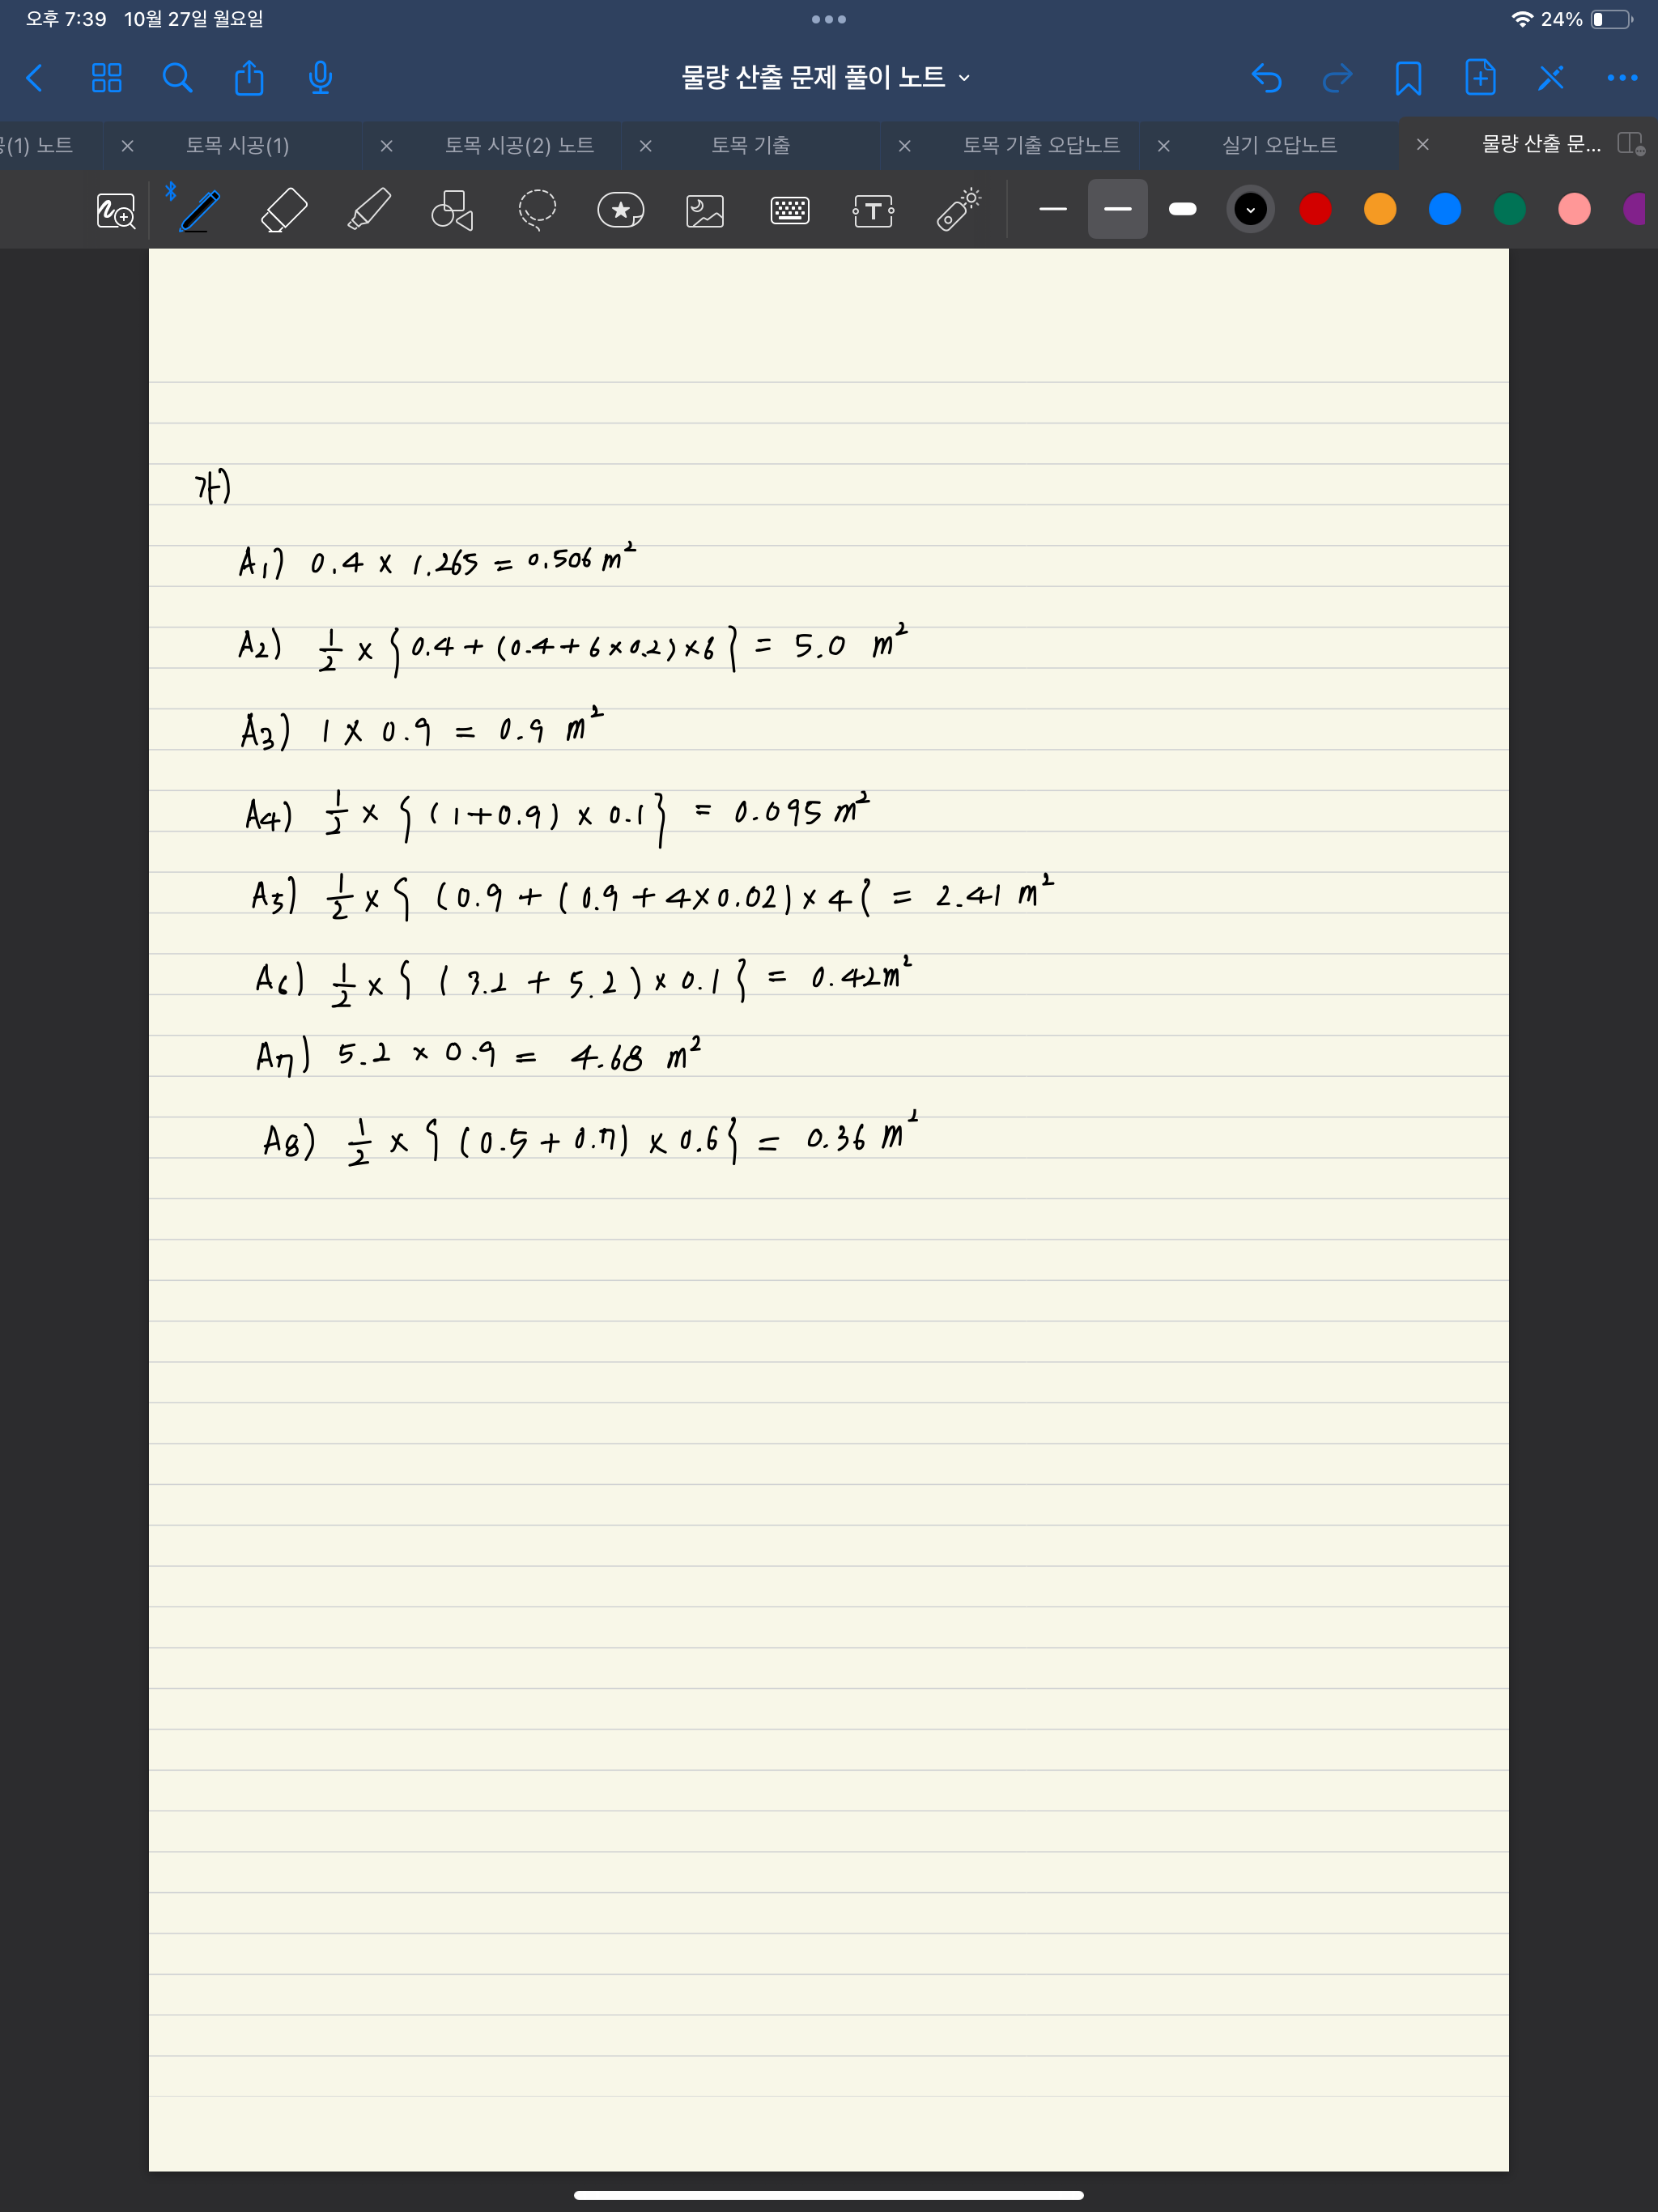 오후 7:39 10월 27일 월요일
24%
물량 산출 문제 풀이 노트
(1) 노트
토목 시공(1)
토목 시공(2) 노트
토목 기출
토목 기출 오답노트
실기 오답노트
물량 산출 문...
가)
A1) 0.4 × 1.265 = 0.506 m²
A2) 1/2 × { 0.4 + (0.4 + 6 × 0.2) × 6 } = 5.0 m²
A3) 1 × 0.9 = 0.9 m²
A4) 1/2 × { (1+0.9) × 0.1 } = 0.095 m²
A5) 1/2 × { (0.9 + (0.9 + 4×0.02) × 4 { = 2.41 m²
A6) 1/2 × { (3.2 + 5.2) × 0.1 } = 0.42 m²
A7) 5.2 × 0.9 = 4.68 m²
A8) 1/2 × { (0.5 + 0.7) × 0.6 } = 0.36 m²